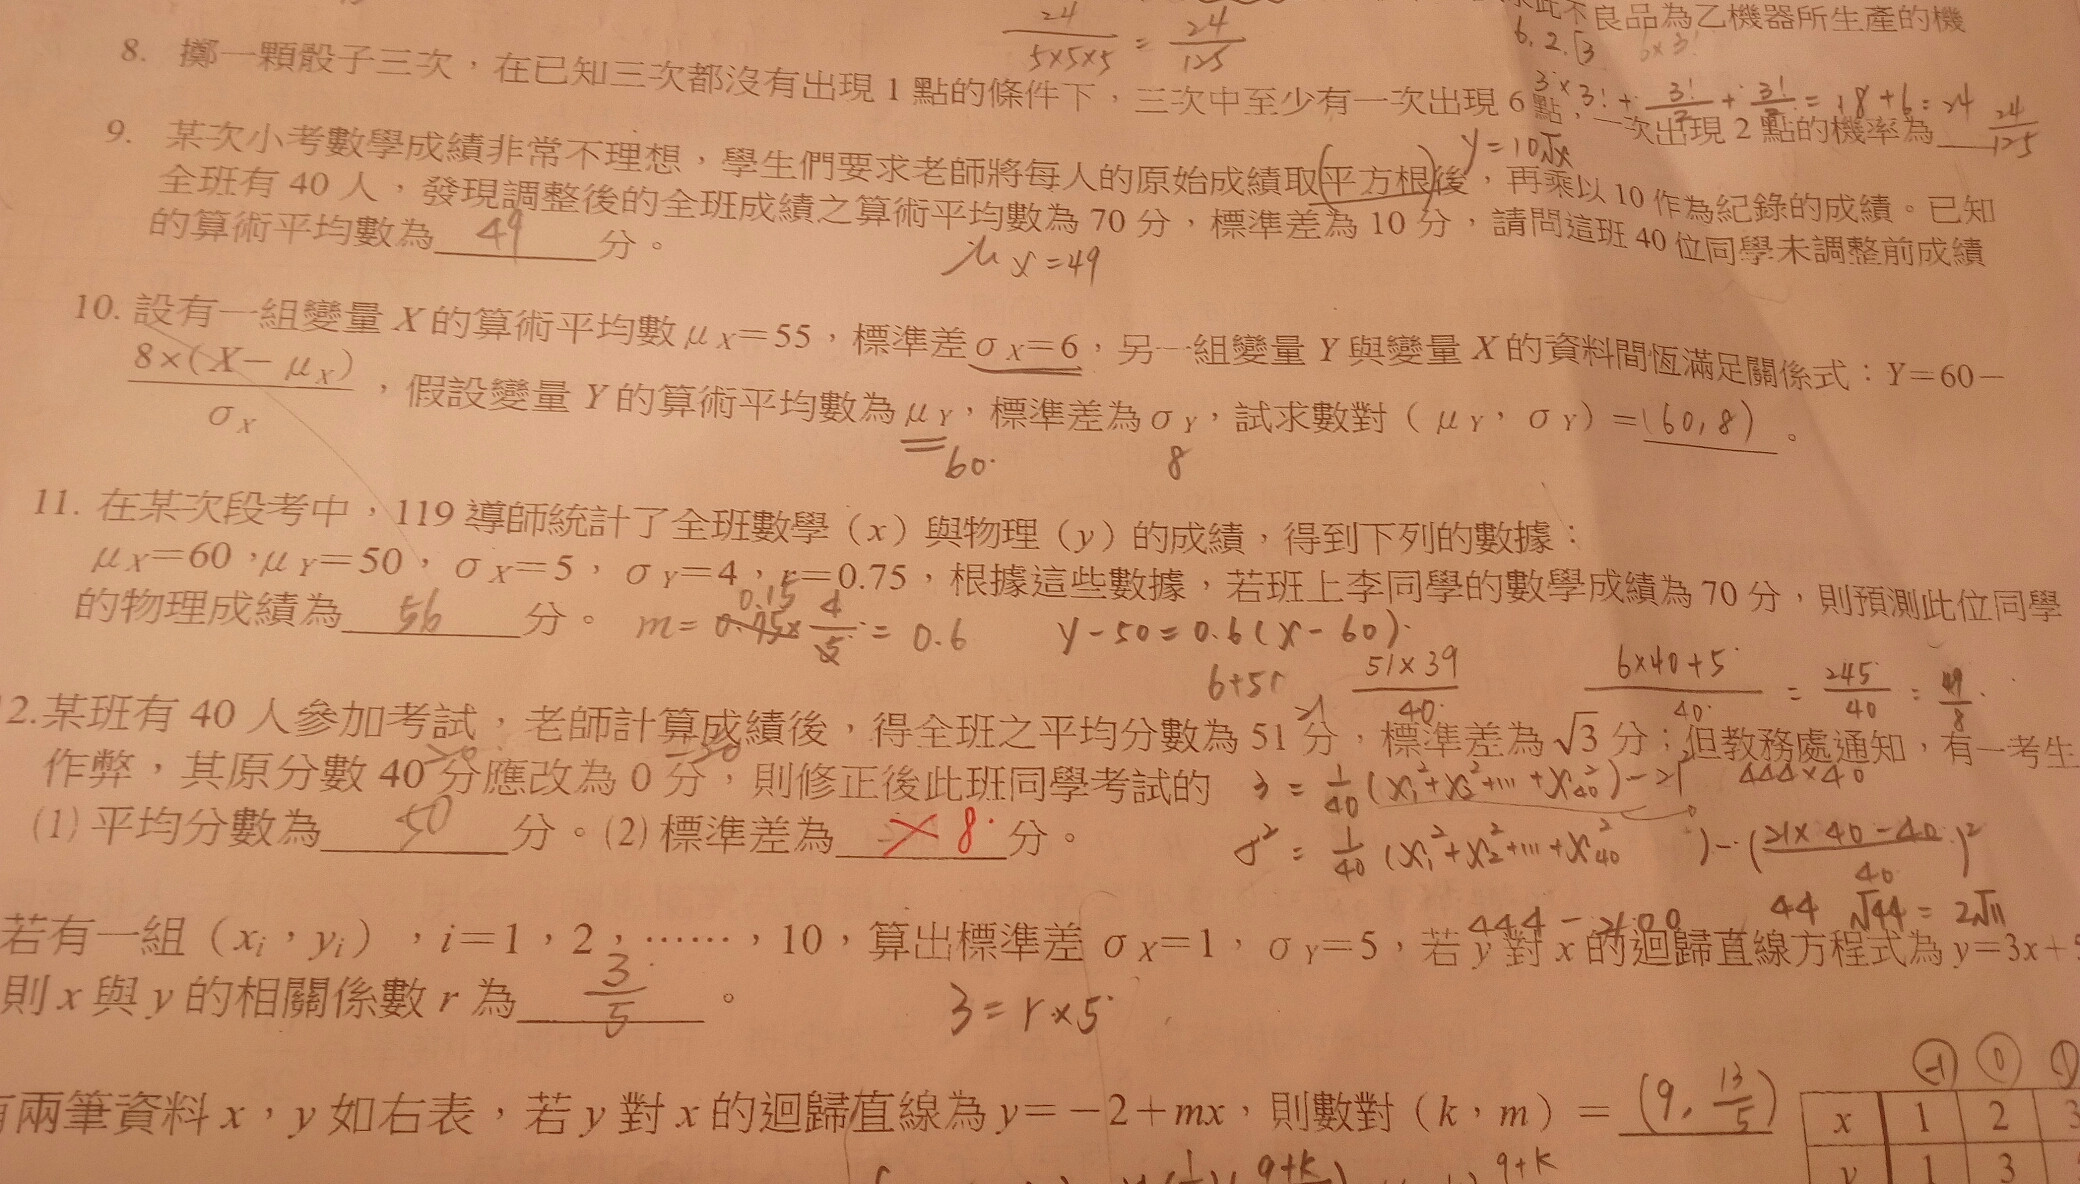 此不良品為乙機器所生產的機
24/5×5×5 = 24/125
6.2.
6×3!
8. 擲一顆骰子三次，在已知三次都沒有出現 1 點的條件下，三次中至少有一次出現 6 點，一次出現 2 點的機率為 24/125
3×3!+3!/2+3!/2=18+6=24
y=10√x
9. 某次小考數學成績非常不理想，學生們要求老師將每人的原始成績取(平方根)後，再乘以 10 作為紀錄的成績。已知
全班有 40 人，發現調整後的全班成績之算術平均數為 70 分，標準差為 10 分，請問這班 40 位同學未調整前成績
的算術平均數為 49 分。
μx=49
10. 設有一組變量 X 的算術平均數 μX=55，標準差 σX=6，另一組變量 Y 與變量 X 的資料間恆滿足關係式：Y=60−
8×(X−μX)/σX，假設變量 Y 的算術平均數為 μY，標準差為 σY，試求數對（μY，σY）=(60,8)。
60. 8
11. 在某次段考中，119 導師統計了全班數學（x）與物理（y）的成績，得到下列的數據：
μX=60，μY=50，σX=5，σY=4，r=0.75，根據這些數據，若班上李同學的數學成績為 70 分，則預測此位同學
的物理成績為 56 分。
0.15
m=0.75×4/5=0.6 y-50=0.6(x-60)
6+51 51×39/40 6×40+5/40 = 245/40 = 49/8
2.某班有 40 人參加考試，老師計算成績後，得全班之平均分數為 51 分，標準差為 √3 分；但教務處通知，有一考生
作弊，其原分數 40 分應改為 0 分，則修正後此班同學考試的
3 = 1/40 (x₁²+x₂²+…+x₄₀²)-21² 444×40
(1) 平均分數為 50 分。(2) 標準差為 8 分。
σ² = 1/40 (x₁²+x₂²+…+x₄₀² )-(21×40-40/40)²
444-400 44 √44 = 2√11
若有一組（xi，yi），i=1，2，……，10，算出標準差 σX=1，σY=5，若 y 對 x 的迴歸直線方程式為 y=3x+
則 x 與 y 的相關係數 r 為 3/5 。
3=r×5
兩筆資料 x，y 如右表，若 y 對 x 的迴歸直線為 y=−2+mx，則數對（k，m）= (9, 13/5)
-1 0 1
x 1 2 3
y 1 3
9+k 9+k